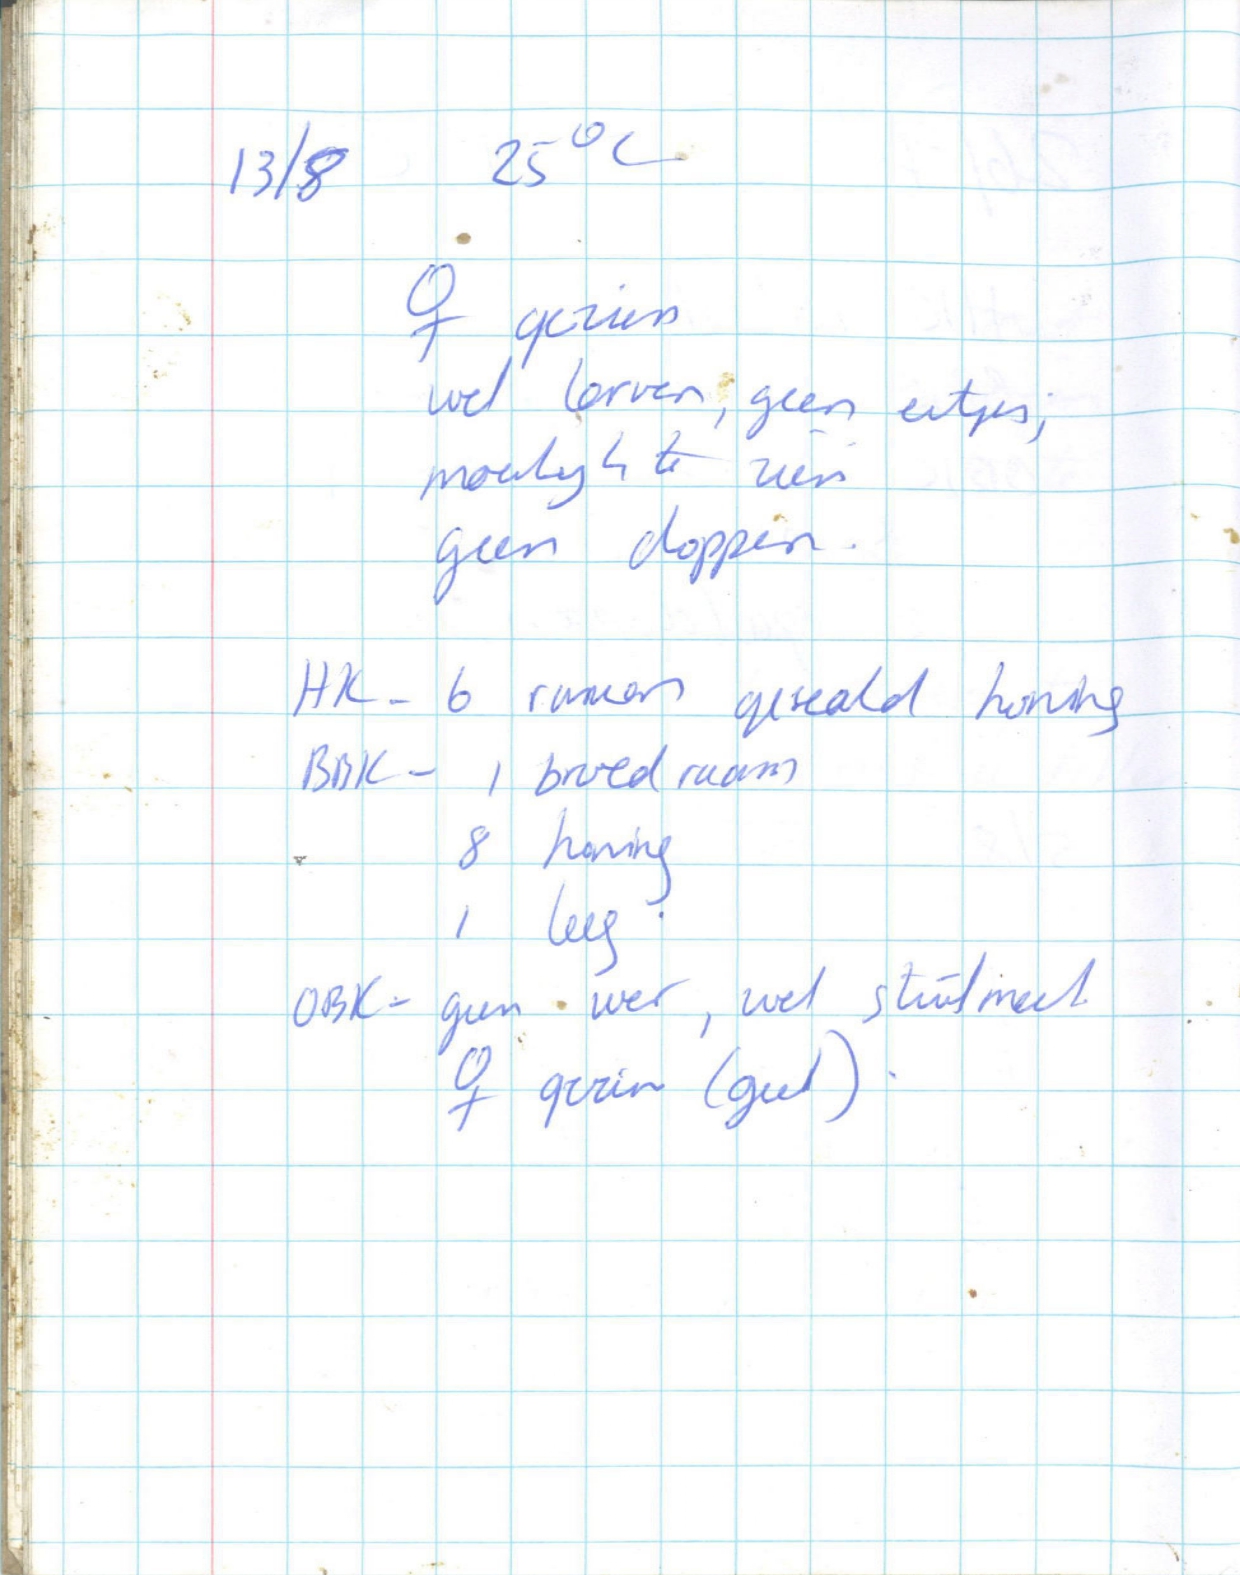 13/8 25°C
♀ gezien
wel larven, geen eitjes;
moeilijk te zien
geen doppen.
HK - 6 ramen gezeald honing
BBK - 1 broedraam
8 honing
1 leeg.
OBK - geen wer, wel stuifmeel.
♀ gezien (geel).